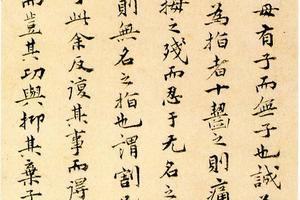 母有子而無子也誠
為指者十齧之則痛
拇之殘而忍于无名之
則無名之指也謂割
于此余反復其事而得
而豈其功與抑其棄子